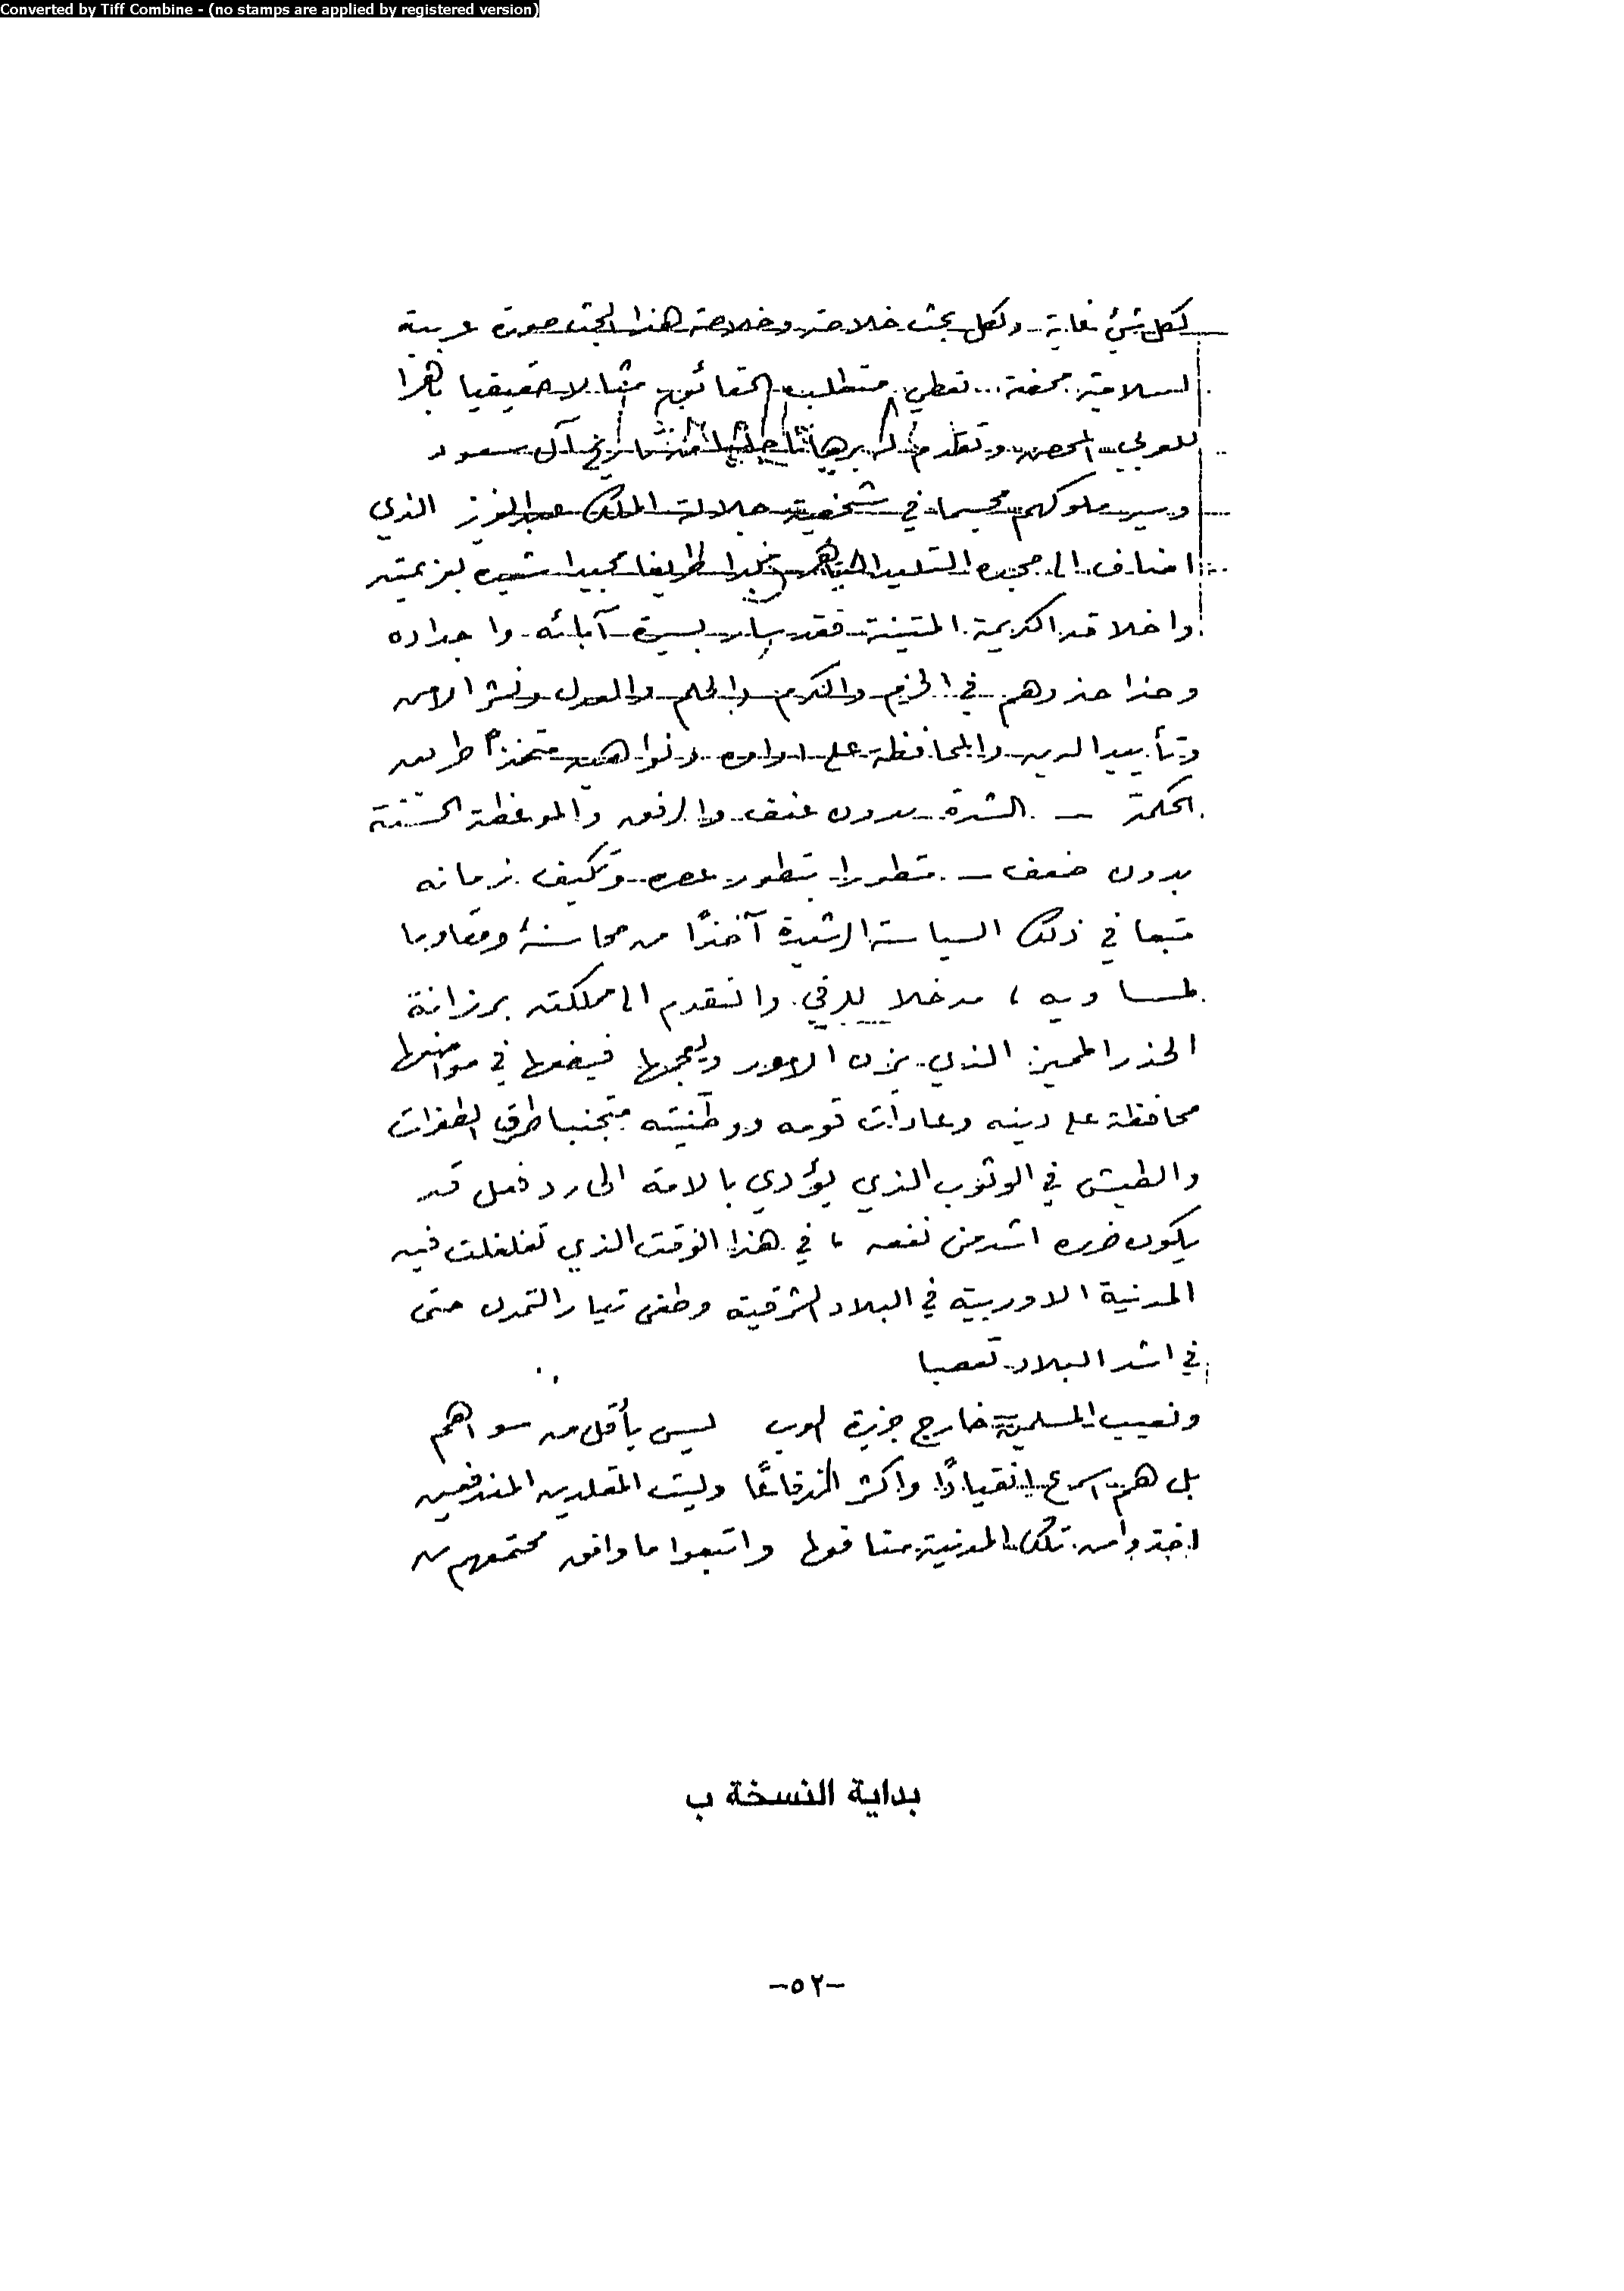 Converted by Tiff Combine - (no stamps are applied by registered version)
لكل شيء غاية ولكل بحث خلاصة وخلاصة هذا البحث صورة عربية
اسلامية محضة.. تعطي متطلب الحقائق مثالا حقيقيا باهرا
للعربي المحض وتقدم له برهانا جليا من تاريخ آل سعود
وسير ملوكهم مجسما في شخصية جلالة الملك عبد العزيز الذي
اضاف الى مجده التليد مجدا طريفا مجيدا شيده بعزيمته
واخلاقه الكريمة المتينة فقد سار بسيرة آبائه واجداده
وحذا حذوهم في الحزم والكرم والحلم والعدل ونشر الامن
وتأييد الدين والمحافظة على اوامره ونواهيه متخذا طريق
الحكمة – الشدة بدون عنف والرفق والموعظة الحسنة
بدون ضعف – متطورا بتطور عصره وتكيف زمانه
متبعا في ذلك السياسة الرشيدة آخذًا من محاسنه ومقاوما
لمساويه ، مدخلا للرقي والتقدم الى مملكته برزانة
الحذر المميز الذي يزن الامور ويعجمها فيضعها في مواضعها
محافظة على دينه وعادات قومه ووطنيته متجنبا طرق الطفرات
والطيش في الوثوب الذي يؤدي بالامة الى رد فعل قد
يكون ضرره اشد من نفعه ، في هذا الوقت الذي تغلغلت فيه
المدنية الاوربية في البلاد الشرقية وطغى تيار التمدن حتى
في اشد البلاد تعصبا
ونصيب المسلمين خارج جزيرة العرب ليس بأقل من سواهم
بل هم اسرع انقيادًا واكثر اندفاعًا وليت المقلدين المندفعين
اخذوا من تلك المدنية منافعها واتبعوا ما وافق مجتمعهم
بداية النسخة ب
-٥٢-